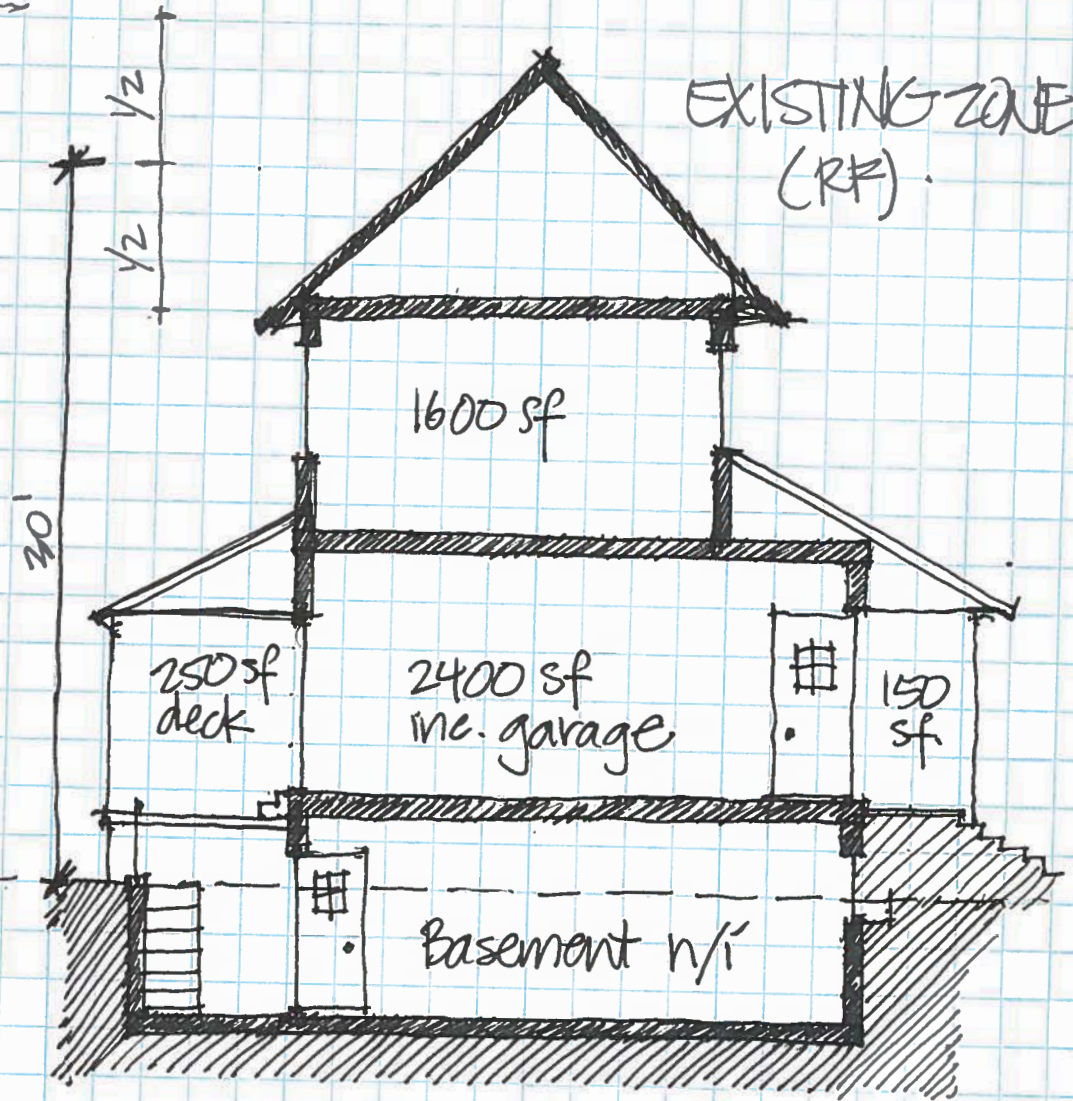 EXISTING ZONE
(RF).
1/2
1/2
30'
1600 sf
250 sf
deck
2400 sf
inc. garage
150
sf.
Basement n/i